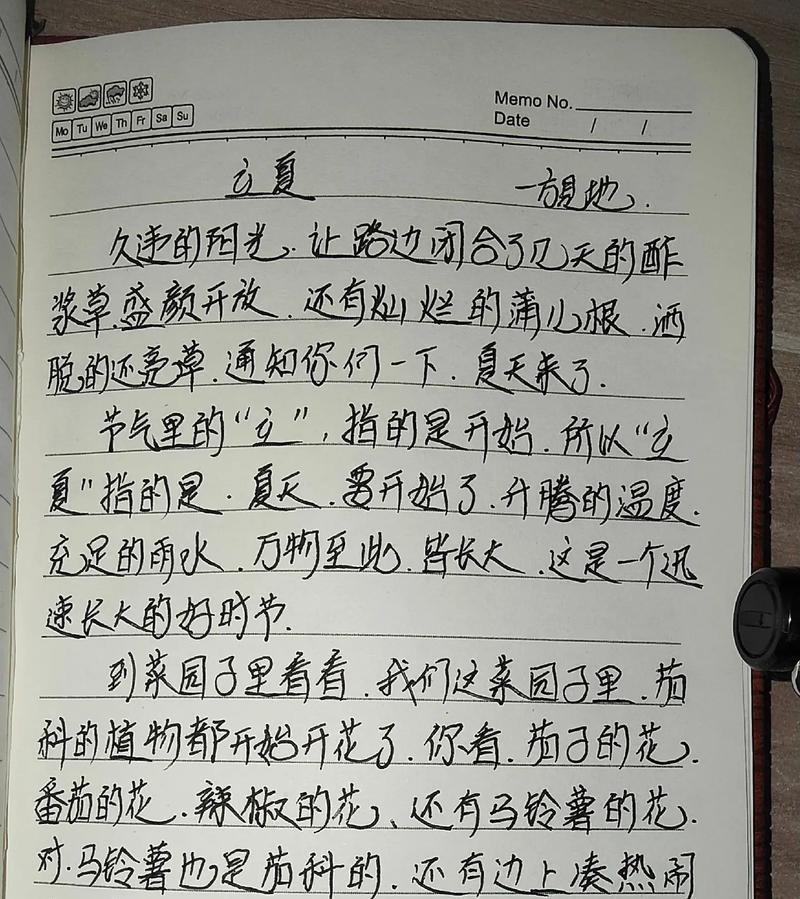 Memo No.
Mo Tu We Th Fr Sa Su
Date / /
立夏 一方見地.
久违的阳光.让路边闭合了几天的酢
浆草.盛颜开放.还有灿烂的蒲儿根.洒
脱的还亮草.通知你们一下.夏天来了.
节气里的“立”,指的是开始.所以“立
夏”指的是.夏天.要开始了.升腾的温度.
充足的雨水.万物至此.皆长大.这是一个迅
速长大的好时节.
到菜园子里看看.我们这菜园子里.茄
科的植物都开始开花了.你看.茄子的花.
番茄的花.辣椒的花、还有马铃薯的花.
对.马铃薯也是茄科的.还有边上凑热闹